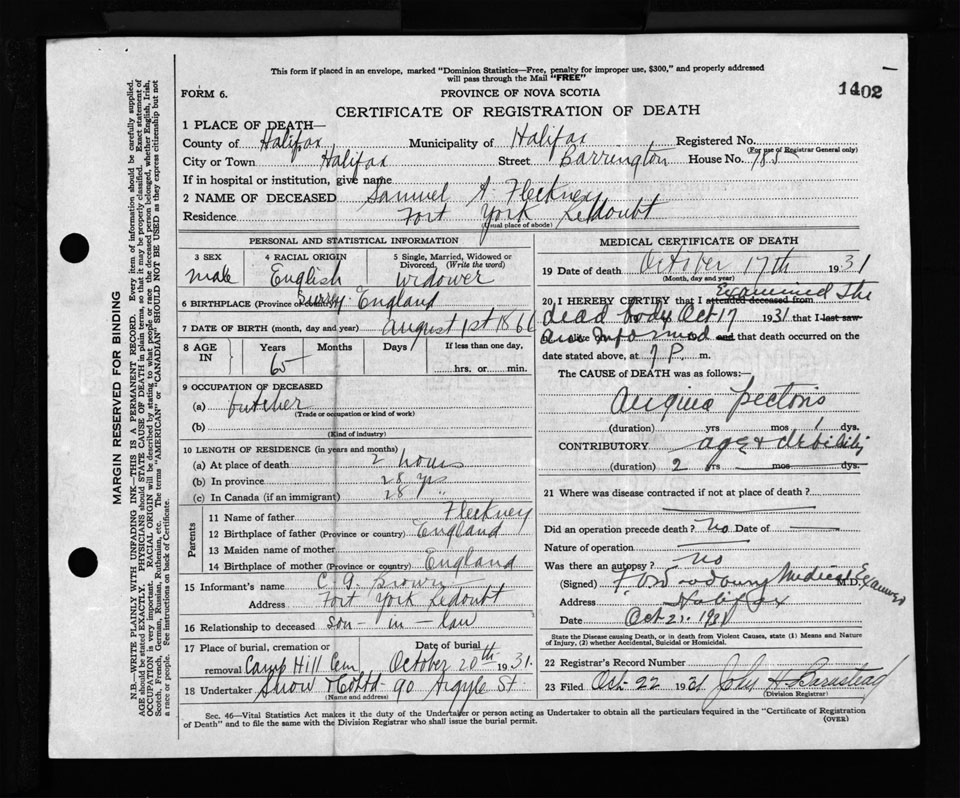 This form if placed in an envelope, marked "Dominion Statistics—Free, penalty for improper use, $300," and properly addressed
will pass through the Mail "FREE"
1402
FORM 6.
PROVINCE OF NOVA SCOTIA
CERTIFICATE OF REGISTRATION OF DEATH
1 PLACE OF DEATH—
County of Halifax Municipality of Halifax Registered No.
(For use of Registrar General only)
City or Town Halifax Street Barrington House No. 785
If in hospital or institution, give name
2 NAME OF DECEASED Samuel A. Fleckney
Residence Fort York Redoubt
(Usual place of abode)
PERSONAL AND STATISTICAL INFORMATION
3 SEX 4 RACIAL ORIGIN 5 Single, Married, Widowed or
Divorced, (Write the word)
male English Widower
6 BIRTHPLACE (Province or country) Surry England
7 DATE OF BIRTH (month, day and year) August 1st 1866
8 AGE IN Years Months Days If less than one day,
65 hrs. or min.
9 OCCUPATION OF DECEASED
(a) butcher
(Trade or occupation or kind of work)
(b)
(Kind of industry)
10 LENGTH OF RESIDENCE (in years and months)
(a) At place of death 2 hours
(b) In province 28 yrs
(c) In Canada (if an immigrant) 28 "
Parents
11 Name of father Fleckney
12 Birthplace of father (Province or country) England
13 Maiden name of mother
14 Birthplace of mother (Province or country) England
15 Informant's name C. G. Brown
Address Fort York Redoubt
16 Relationship to deceased son-in-law
17 Place of burial, cremation or Date of burial
removal Camp Hill Cem October 20th 1931.
18 Undertaker Snow & Co Ltd - 90 Argyle St.
(Name and address)
MEDICAL CERTIFICATE OF DEATH
19 Date of death October 17th 1931
(Month, day and year)
20 I HEREBY CERTIFY that I attended deceased from Examined the
dead body Oct 17 1931 that I last saw
am informed and that death occurred on the
date stated above, at 7 P. m.
The CAUSE of DEATH was as follows:—
Angina Pectoris
(duration) yrs mos 1 dys.
CONTRIBUTORY age & debility
(duration) 2 yrs mos dys.
21 Where was disease contracted if not at place of death?
Did an operation precede death? No Date of
Nature of operation
Was there an autopsy? no
(Signed) Woodbury Medical Examiner M.D.
Address Halifax
Date Oct 21. 1931
State the Disease causing Death, or in death from Violent Causes, state (1) Means and Nature
of Injury, (2) whether Accidental, Suicidal or Homicidal.
22 Registrar's Record Number
23 Filed Oct 22 1931 John H Barnstead
(Division Registrar)
Sec. 46—Vital Statistics Act makes it the duty of the Undertaker or person acting as Undertaker to obtain all the particulars required in the "Certificate of Registration
of Death" and to file the same with the Division Registrar who shall issue the burial permit. (OVER)
MARGIN RESERVED FOR BINDING
N.B.—WRITE PLAINLY WITH UNFADING INK—THIS IS A PERMANENT RECORD. Every item of information should be carefully supplied.
AGE should be stated EXACTLY. PHYSICIANS should STATE CAUSE OF DEATH in plain terms, so that it may be properly classified. Exact statement of
OCCUPATION is very important. RACIAL ORIGIN will be described by stating to what people or race the deceased person belonged, whether English, Irish,
Scotch, French, German, Russian, Ruthenian, etc. The terms "AMERICAN" or "CANADIAN" SHOULD NOT BE USED as they express citizenship but not
a race or people. See instructions on back of Certificate.